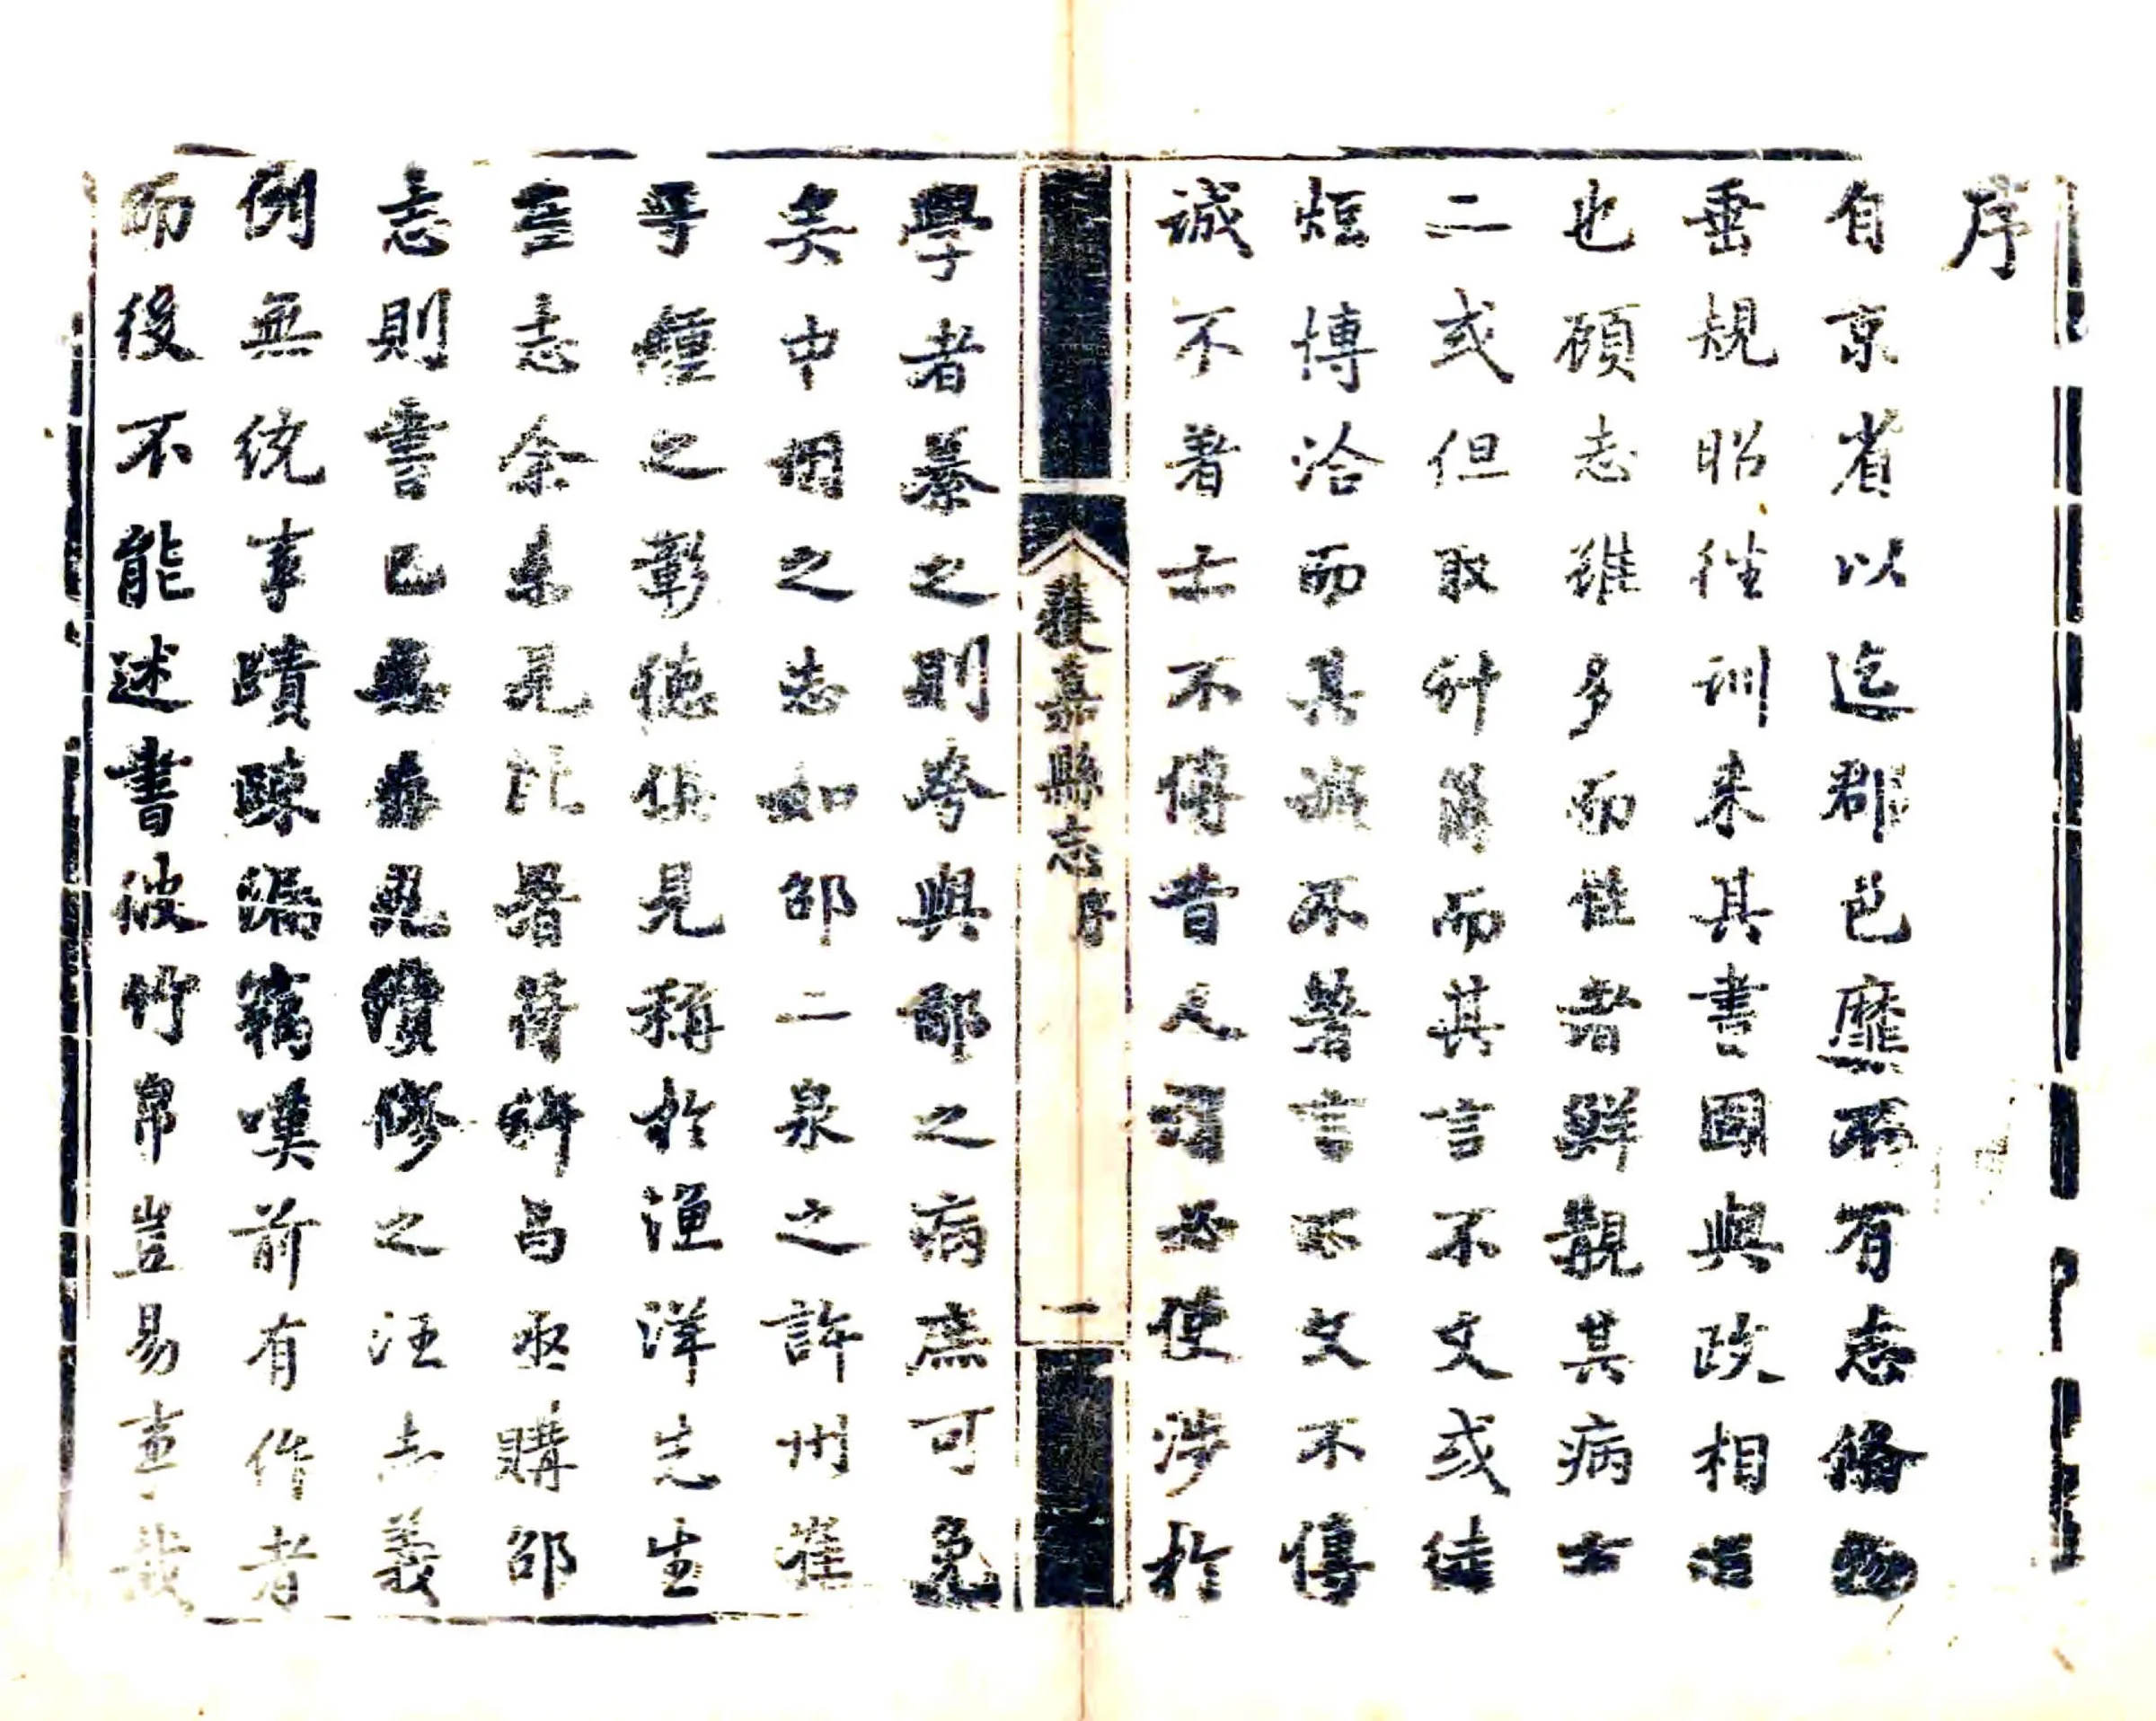 序
自京省以迄郡邑靡不有志俻物
垂規昭徃訓来其書固與政相
也碩志雖多而佳者鮮覩其病士
二或但取計簿而其言不文或徒
炬博洽而其不著言不文不傳
誠不著士不傳昔人謂必使涉於
獲嘉縣志序
一
學者慕之則夸與鄙之病庶可免
矣中州之志如邵二泉之許州崔
之彰德俱見稱於漁洋先生
志余未見比署符許昌亟購邵
志則書已無存見續修之汪志義
例無統事蹟踈漏竊嘆前有作者
而後不能述書彼竹帛豈易言哉